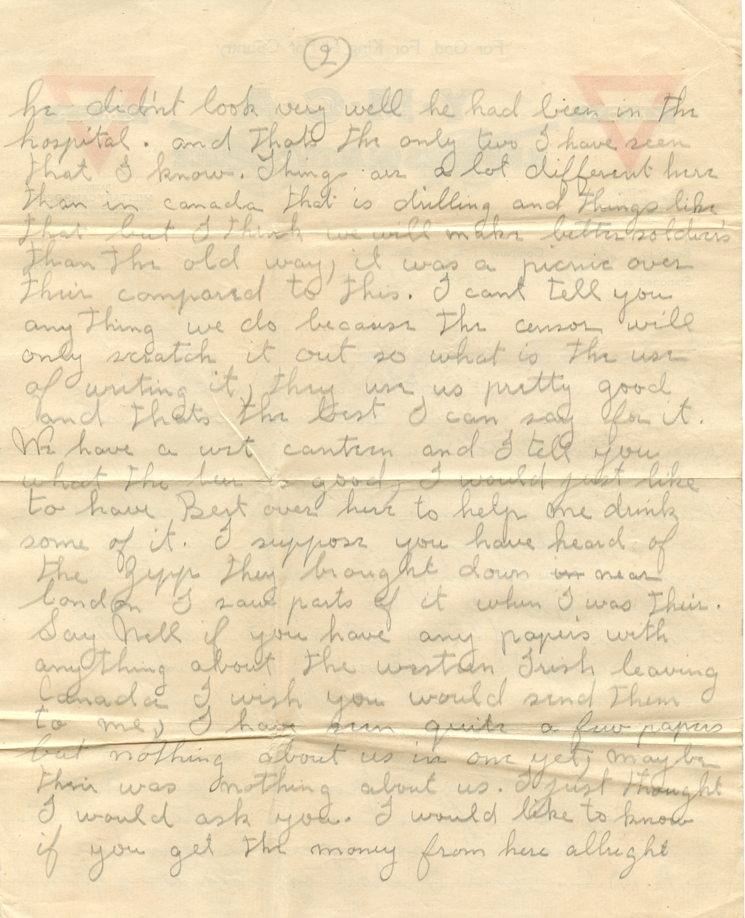 (2)
he didn't look very well he had been in the
hospital. and thats the only two I have seen
that I know. Things are a lot different here
than in canada that is drilling and things like
that but I think we will make better soldiers
than the old way, it was a picnic over
their compared to this. I cant tell you
anything we do because the censor will
only scratch it out so what is the use
of writing it, they use us pretty good
and thats the best I can say for it.
We have a wet canteen and I tell you
what the beer is good, I would just like
to have Bert over here to help me drink
some of it. I suppose you have heard of
the Zepp they brought down in near
london I saw parts of it when I was their.
Say Nell if you have any papers with
anything about the western Irish leaving
Canada I wish you would send them
to me, I have seen quite a few papers
but nothing about us in one yet, maybe
their was nothing about us. I just thought
I would ask you. I would like to know
if you get the money from here allright